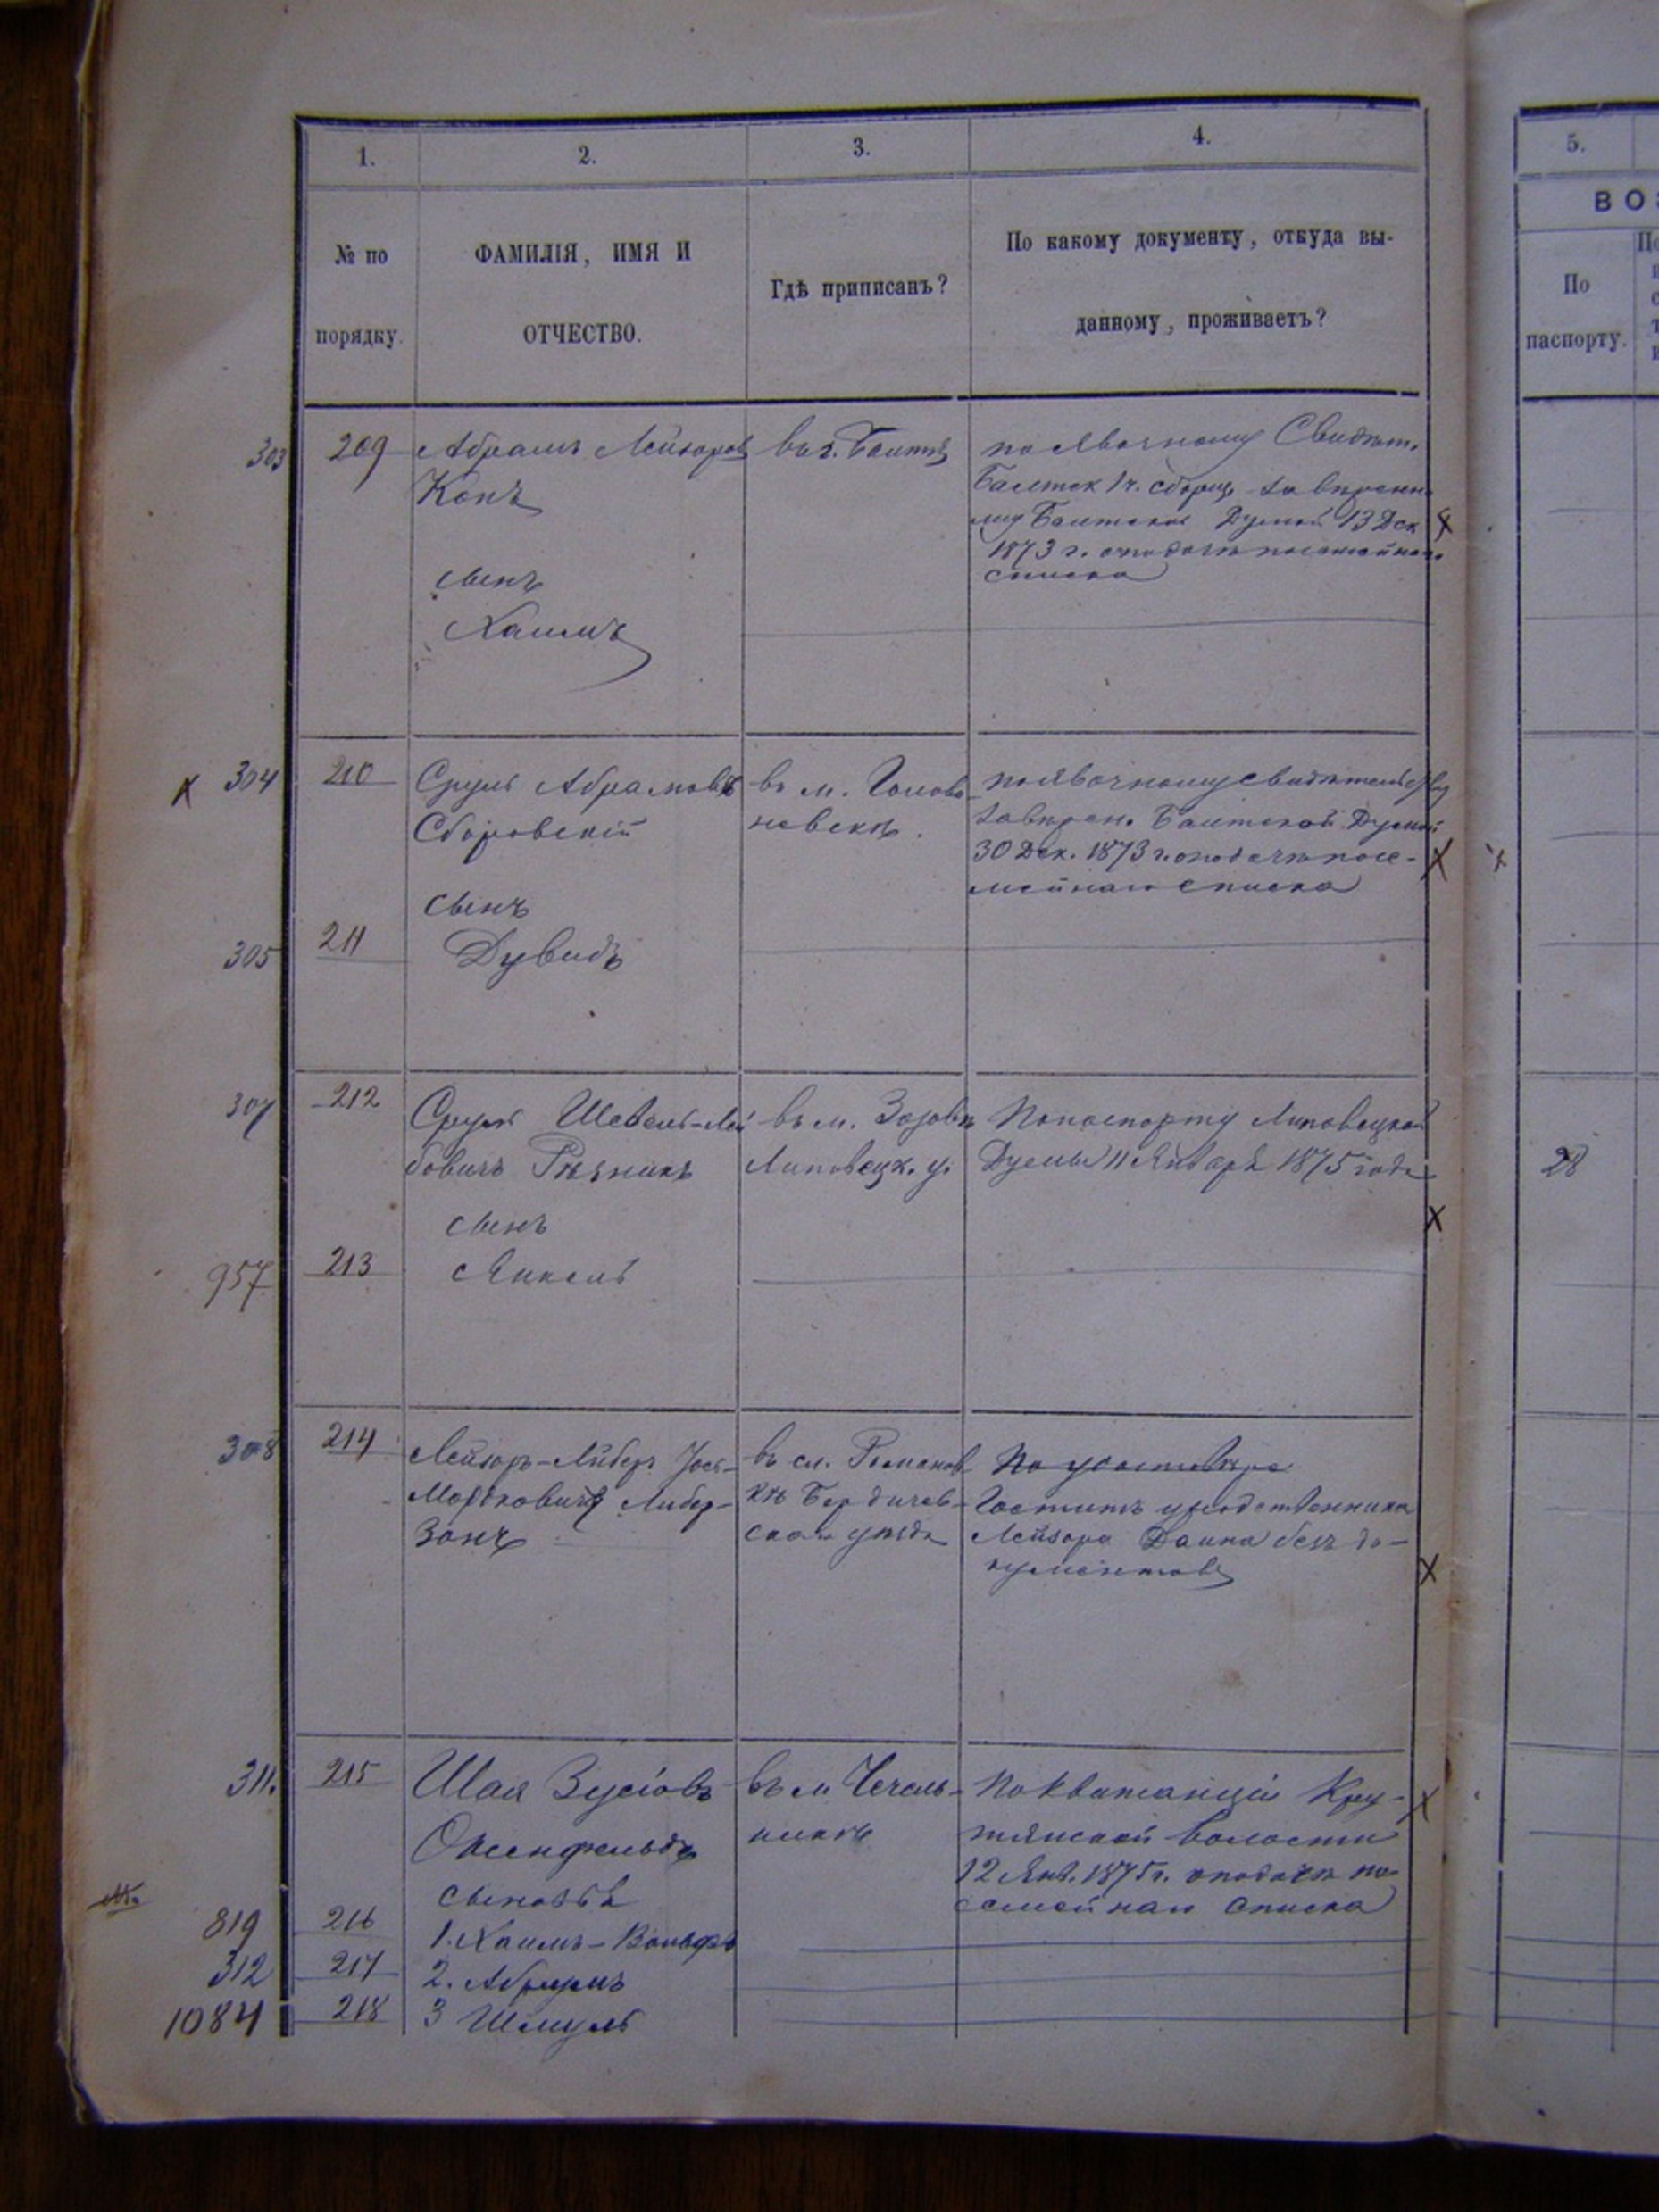 1. 2. 3. 4. 5.
№ по порядку.
ФАМИЛІЯ, ИМЯ И ОТЧЕСТВО.
Гдѣ приписанъ?
По какому документу, откуда выданному, проживаетъ?
ВОЗ
По паспорту.
303 209 Абрамъ Лейзоровъ
Конъ
сынъ
Хаимъ
въ г. Балтѣ
по явочному Свидѣт.
Балтск 1 ч. сборщ. завѣренн
Балтской Думой 13 Дек
1873 г. о подачѣ посемейнаго
списка
304 210 Сруль Абрамовъ
Сборовскій
сынъ
305 211 Дувидъ
въ м. Голова
невскѣ.
по явочному свидѣтельству
завѣрен. Балтской Думой
30 Дек. 1873 г. о подачѣ посе-
мейнаго списка
307 212 Сруль Шевель-Лей
бовичъ Рѣзникъ
сынъ
957 213 Янкель
въ м. Зозовѣ
Липовецк. у.
По паспорту Липовецкой
Думы 11 Января 1875 года
28
308 214 Лейзоръ-Либеръ Іось-
Мордковичъ Либер-
зонъ
въ м. Романов
кѣ Бердичев-
скаго уѣзда
Гоститъ у родственника
Лейзора Даина безъ до-
кументовъ
311. 215 Шая Зусіовъ
Оксенфельдъ
сыновья
819 216 1. Хаимъ-Вольфъ
312 217 2. Абрумъ
1084 218 3 Шмуль
въ м Чечель-
никѣ
По квитанціи Кру-
тянской волости
12 Янв. 1875 г. о подачѣ по-
семейнаго списка